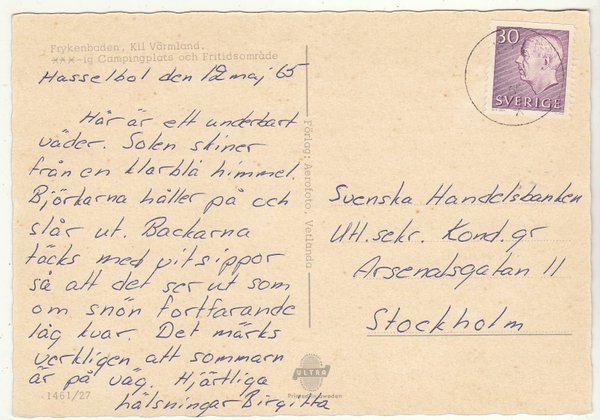 Frykenbaden, Kil Värmland.
***-ig Campingplats och Fritidsområde
Hasselbol den 12 maj 65
Här är ett underbart
väder. Solen skiner
från en klarblå himmel.
Björkarna håller på och
slår ut. Backarna
täcks med vitsippor
så att det ser ut som
om snön fortfarande
låg kvar. Det märks
verkligen att sommarn
är på väg. Hjärtliga
hälsningar Birgitta
1461/27
Förlag: Aerofoto, Vetlanda
ULTRA
30
SVERIGE
Svenska Handelsbanken
UH.sekr. Kond.gr
Arsenalsgatan 11
Stockholm